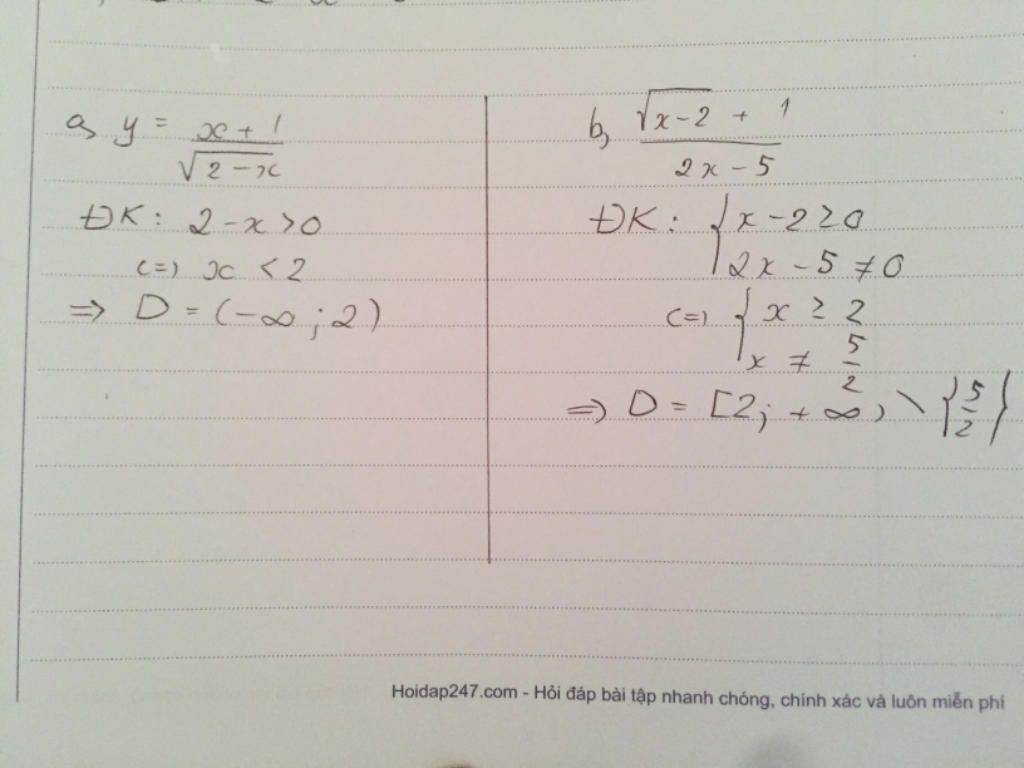 a, y = x + 1
√2 - x
ĐK: 2 - x > 0
(=) x < 2
=> D = (-∞ ; 2)
b, √x - 2 + 1
2x - 5
ĐK: { x - 2 ≥ 0
2x - 5 ≠ 0
(=) { x ≥ 2
x ≠ 5/2
=> D = [2; + ∞) \ {5/2}
Hoidap247.com - Hỏi đáp bài tập nhanh chóng, chính xác và luôn miễn phí